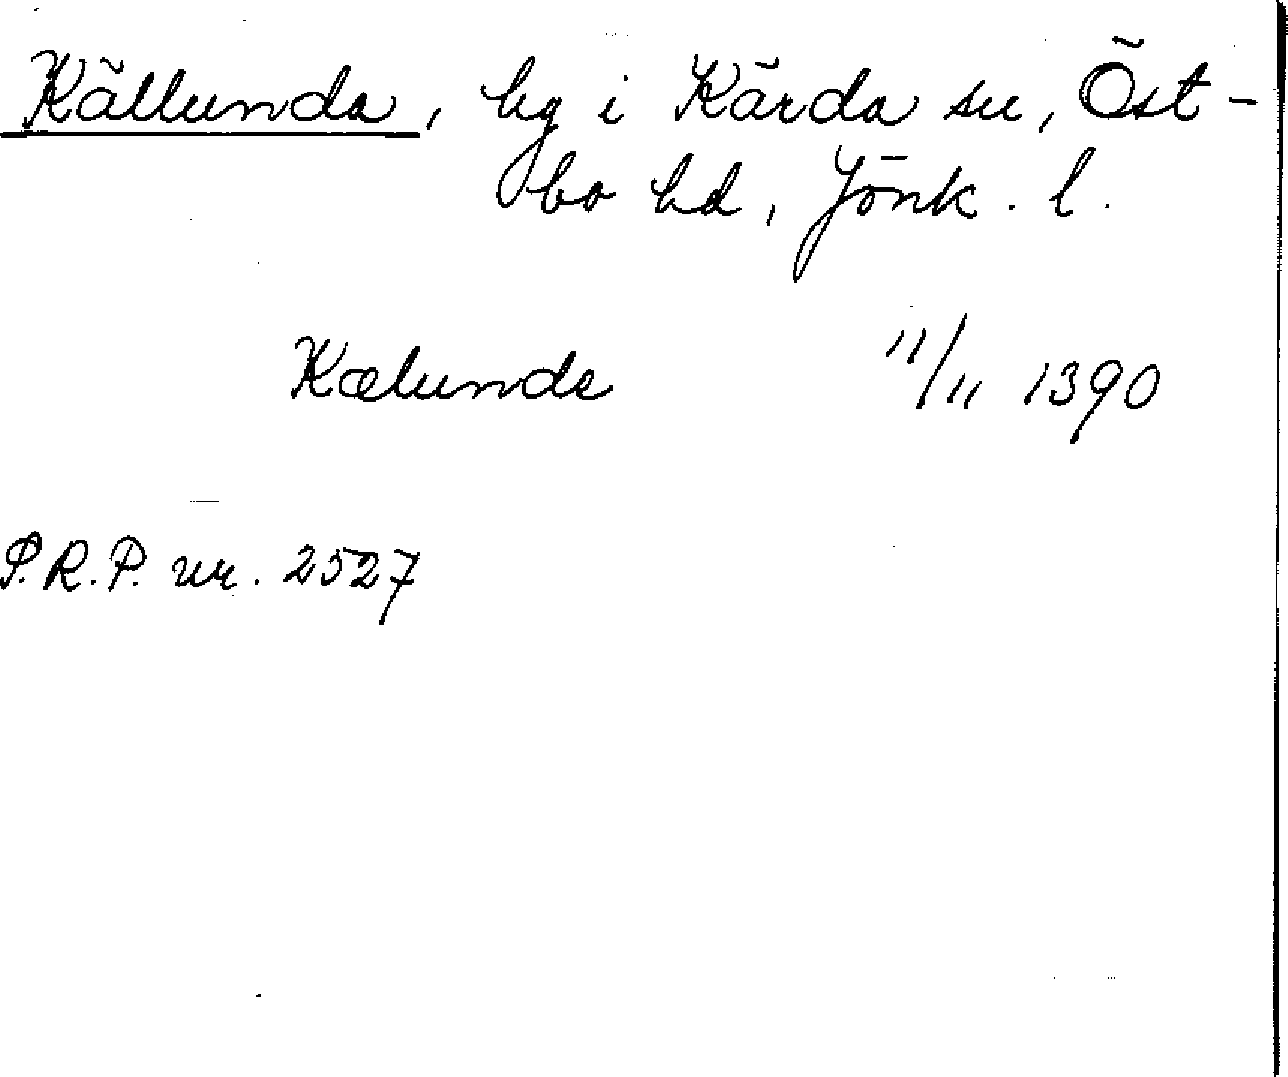 Källunda, by i Kärda sn, Öst-
bo hd, Jönk. l.
Kælunde 11/11 1390
S.R.P. nr. 2527